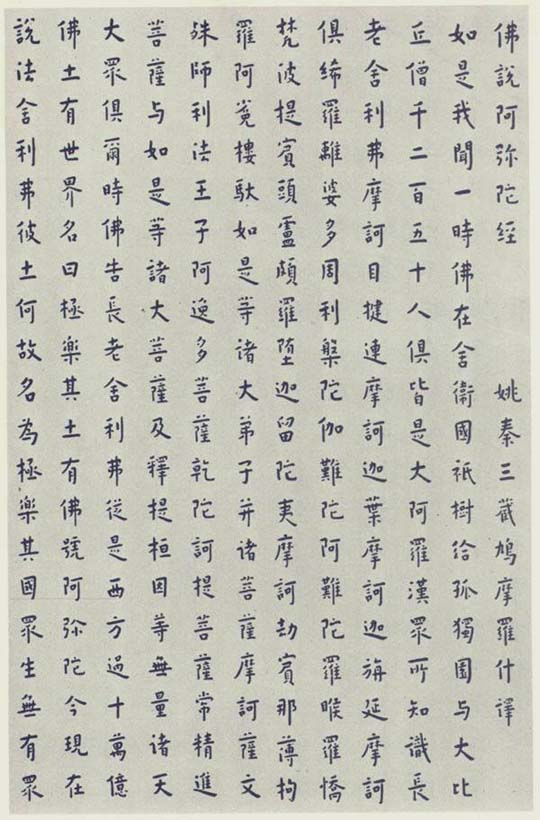 佛說阿弥陀経 姚秦三藏鳩摩羅什譯
如是我聞一時佛在舍衞國祇樹給孤獨園与大比
丘僧千二百五十人俱皆是大阿羅漢眾所知識長
老舍利弗摩訶目揵連摩訶迦葉摩訶迦旃延摩訶
俱絺羅離婆多周利槃陀伽難陀阿難陀羅睺羅憍
梵波提賓頭盧頗羅堕迦留陀夷摩訶劫賓那薄拘
羅阿㝹樓馱如是等诸大弟子并诸菩薩摩訶薩文
殊師利法王子阿逸多菩薩乾陀訶提菩薩常精進
菩薩与如是等諸大菩薩及釋提桓因等無量諸天
大眾俱爾時佛告長老舍利弗從是西方過十萬億
佛土有世界名曰極樂其土有佛號阿弥陀今現在
說法舍利弗彼土何故名為極樂其國眾生無有眾